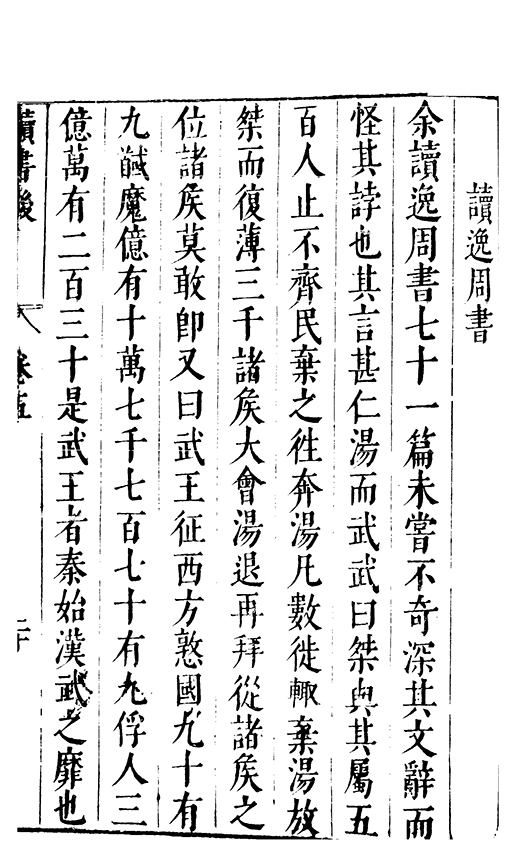 讀逸周書
余讀逸周書七十一篇未嘗不奇深其文辭而
怪其誖也其言甚仁湯而武武曰桀與其屬五
百人止不齊民棄之徃奔湯凡數徙輙棄湯放
桀而復薄三千諸矦大會湯退再拜從諸矦之
位諸矦莫敢卽又曰武王征西方憝國九十有
九馘魔億有十萬七千七百七十有九俘人三
億萬有二百三十是武王者秦始漢武之靡也
讀書後 卷五 二十